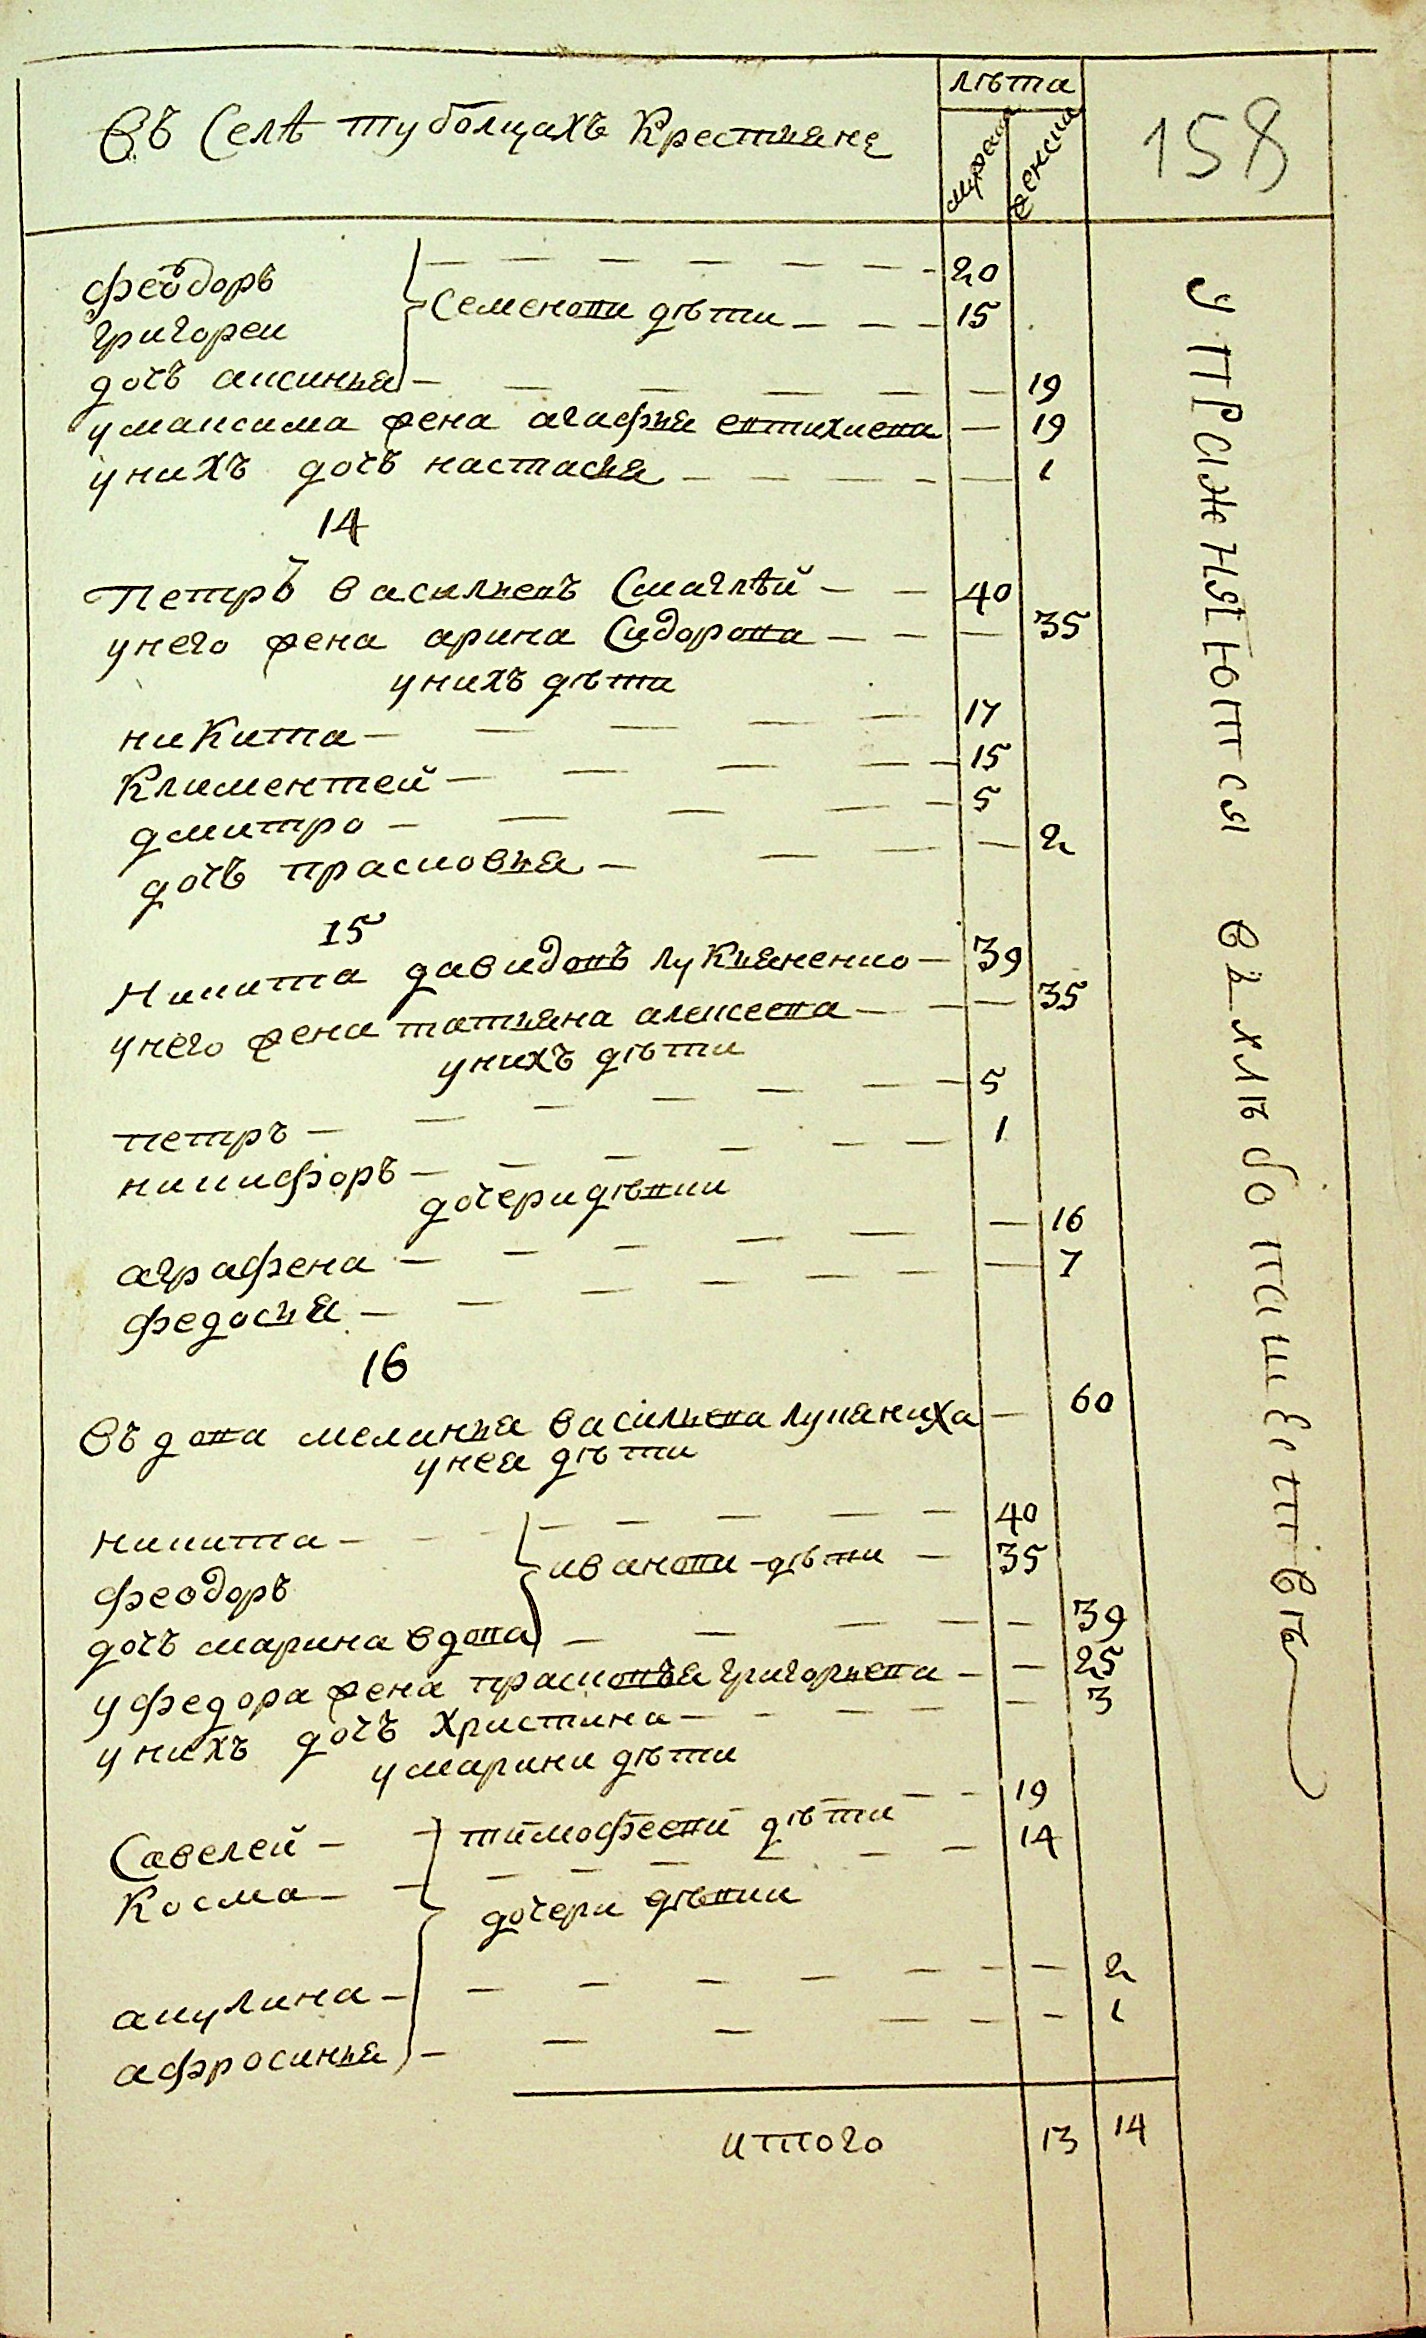 въ Селѣ туболцахъ Крестияне
лѣта
мужеск
женски
158
феѡдоръ 20
григореи Семенови дѣти 15
дочъ аксинья 19
умаксима жена агафия евтихиева 19
унихъ дочъ настасия 1
14
Петръ васильевъ Смаглѣй 40
унего жена арина Сидорова 35
унихъ дѣти
никита 17
Климентей 15
дмитро 5
дочъ прасковия 2
15
Никита давидовъ лукияненко 39
унего жена татияна алексеева 35
унихъ дѣти
петръ 5
никифоръ 1
дочери дѣвки
аграфена 16
федосия 7
16
въдова меланья васильева лупяниха 60
унея дѣти
никита 40
феодоръ ивановы дѣти 35
дочъ марина вдова 39
уфедора жена прасковья григорьева 25
унихъ дочъ христина 3
умарини дѣти
Савелей 19
Косма тимофееви дѣти 14
дочери дѣвки
акулина 2
афросинья 1
итого 13 14
упражняются в хлѣбопашествѣ